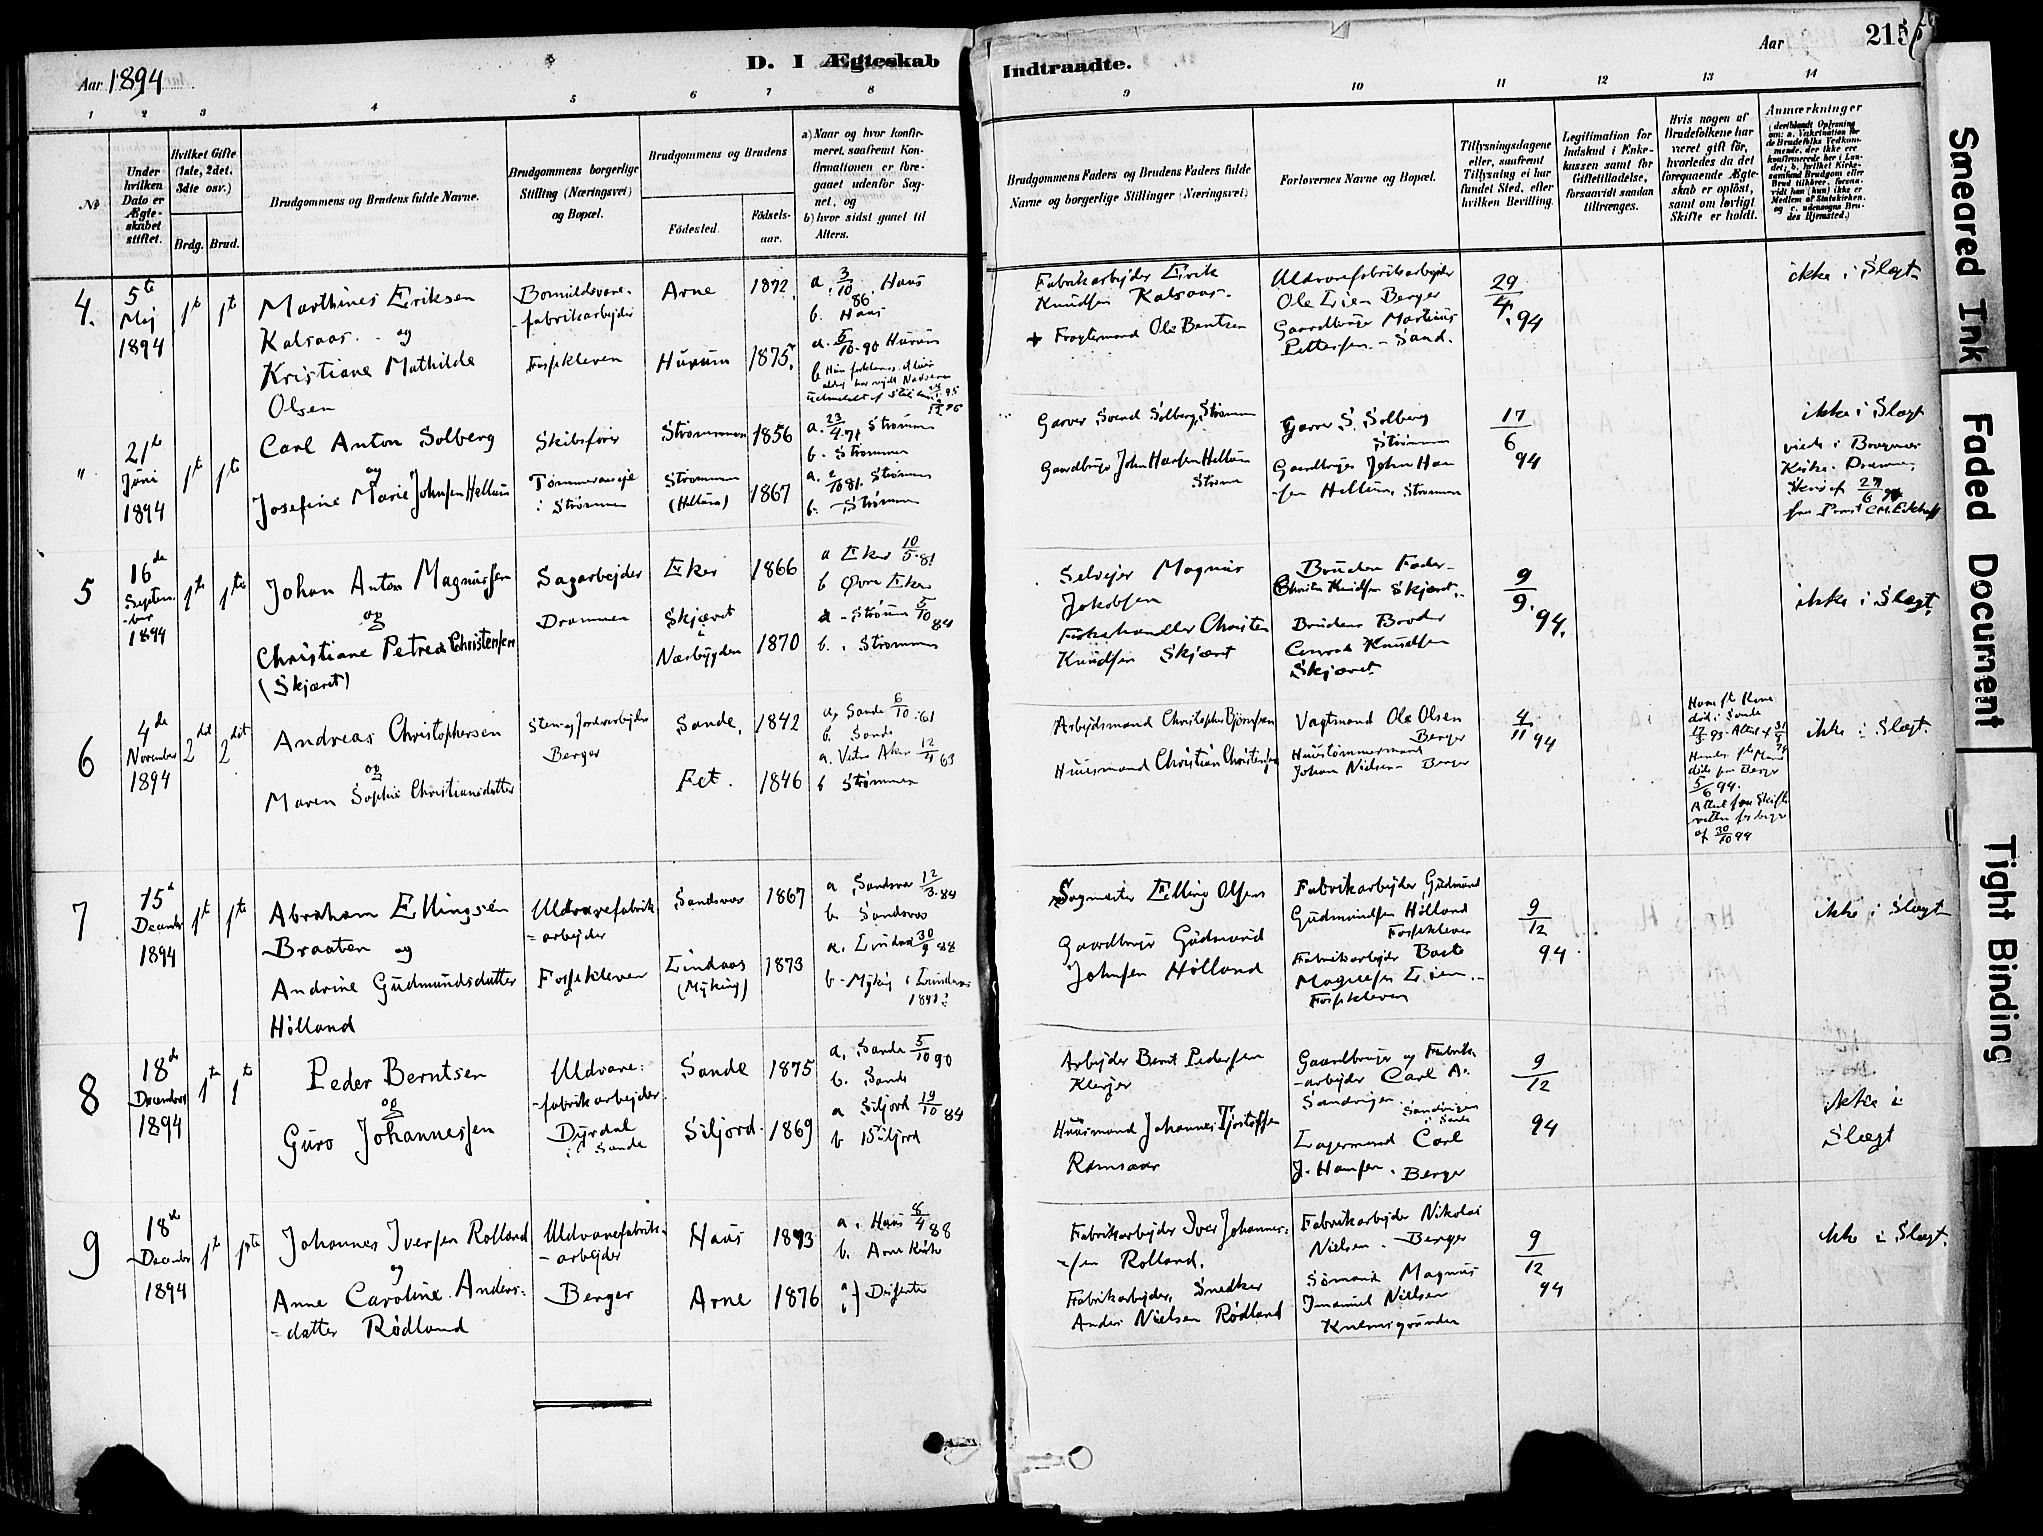 Aar 1894
D. I Ægteskab
Indtraadte.
Aar
215
1
2
3
4
5
6
7
8
9
10
11
12
13
14
No
Under hvilken Dato er Ægteskabet stiftet.
Hvilket Gifte (1ste, 2det, 3dte osv.)
Brdg.
Brud.
Brudgommens og Brudens fulde Navne.
Brudgommens borgerlige Stilling (Næringsvei) og Bopæl.
Brudgommens og Brudens
Fødested.
Fødselsaar.
a) Naar og hvor konfirmeret, saafremt Konfirmationen er foregaaet udenfor Sognet, og
b) hvor sidst gaaet til Alters.
Brudgommens Faders og Brudens Faders fulde Navne og borgerlige Stillinger (Næringsvei)
Forlovernes Navne og Bopæl.
Tillysningsdagene eller, saafremt Tillysning ei har fundet Sted, efter hvilken Bevilling.
Legitimation for Indskud i Enkekassen samt for Giftetilladelse, forsaavidt saadan tiltrænges.
Hvis nogen af Brudefolkene har været gift før, hvorledes da det foregaaende Ægteskab er opløst, samt om lovligt Skifte er holdt.
Anmærkninger
4.
5te Maj 1894
1te
1te
Marthines Eriksen
Kalsaas. og
Kristiane Mathilde
Olsen
fabrikarbejder
Fossekleven
Arne
1872.
a. 3/10 86. Haus
b. Haus
Hurum
1875.
a. 5/10 90 Hurum
Fabrikarbejder Eirik
Knudsen Kalsaas.
+ Fragtemand Ole Bentsen
Uldvarefabrikarbejder
Ole Lien Berger
Gaardbruger Martinus
Pettersen - Sand.
29/4. 94
ikke i Slægt.
"
21te Juni 1894
1te
1te
Carl Anton Solberg
og
Josefine Marie Johnsen Hellum
Skibsfører
i Strømmen
Strømmen
1856
a. 23/4 71 Strømm
b. Strømmen
Strømmen
(Hellum)
1867
a. 2/10 81. Strømm
b. Strømmen
Garver Svend Solberg, Strømm
Gaardbruger John Hansen Hellum
Strømm
Garver S. Solberg
Strømm
Gaardbruger John Han
-sen Hellum, Strømmen
17/6 94
ikke i Slægt
viede i Bragernes
Kirke. Drammen
5
16de Septem-ber 1894
1te
1te
Johan Anton Magnussen
og
Christiane Petrea Christensen
(Skjæret)
Sagarbejder
Drammen
Eker
1866
a Eker 10/5 81
b Øvre Eker
Skjæret
i
Nesbygden
1870
a - Strømm 5/10 84
b. Strømmen
Selvejer Magnus
Jakobsen
Fiskehandler Christen
Knudsen Skjæret
Brudens Fader
Christen Knudsen Skjæret.
Brudens Broder
Conrad Knudsen
Skjæret.
9/9. 94.
ikke i Slægt.
6
4de November 1894
2det
2det
Andreas Christophersen
og
Maren Sophie Christiansdatter
Sten og Jordarbejder
Berger
Sande.
1842
a, Sande 6/10 61
b. Sande
Fet.
1846
a. Vestre Aker 12/4 63
b Strømmen
Arbejdsmand Christopher Bjørnsen
Husmand Christian Christensen
Vagtmand Ole Olsen
Berger
Hustømmermand
Johan Nielsen - Berger
4/11 94
ikke i Slægt.
7
15de December 1894
1te
1te
Abraham Ellingsen
Braaten og
Andrine Gudmundsdatter
Hølland
Uldvarefabrik
- arbejder
Fossekleven
Sandsvær
1867
a Sandsvær 12/3 84
b. Sandsvær
Lindaas
(Myking)
1873
a. Lindaas 30/9 88
b - Myking i Lindaas
Sagmester Elling Olsen
Gaardbruger Gudmund
Johnsen Hølland
Fabrikarbejder, Gudmund
Gudmundsen Hølland
Fossekleven
Fabrikarbejder
Magnesen Lien
Fossekleven
9/12 94
ikke i Slægt
8
18de December 1894
1te
1te
Peder Berntsen
og
Guro Johannessen
Uldvare-
-fabrikarbejder
Dyrdal
i Sande
Sande
1875
a, Sande 5/10 90
b. Sande
Siljord
1869
a Siljord 19/10 84
b Siljord
Arbejder Bernt Pedersen
Klevjer
Husmand Johannes Tjostolfsen
Ramsaas
Gaardbruger og Fabrik-
-arbejder Carl A.
Sandvigen
Sandvigen
i Sande
Lagermand Carl
J. Hansen. Berger
9/12 94
ikke i
Slægt
9
18de December 1894
1te
1te
Johannes Iversen Rolland
og
Anne Caroline Anders-
-datter Rødland
Uldvarefabrik-
- arbejder
Berger
Haus
1873
a. Haus 8/4 88
b. Arne Kirke
Arne
1876
a
b
Dissenter
Fabrikarbejder Iver Johannes-
-sen Rolland.
Fabrikarbejder, Snedker
Anders Nielsen Rødland
Fabrikarbejder Nikolai
Nielsen. Berger
Sømand Magnus
Imanuel Nielsen
9/12 94
ikke i Slægt.
Smeared Ink
Faded Document
Tight Binding